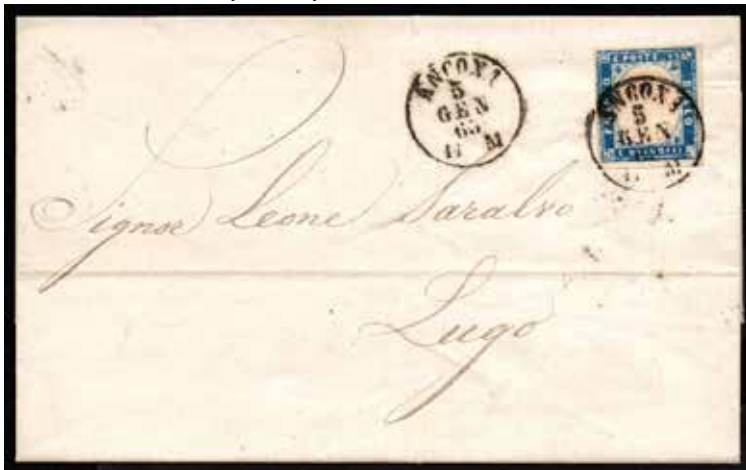 ANCONA
5
GEN
63
11 M
ANCONA
5
GEN
M
Signor Leone Saralvo
Lugo